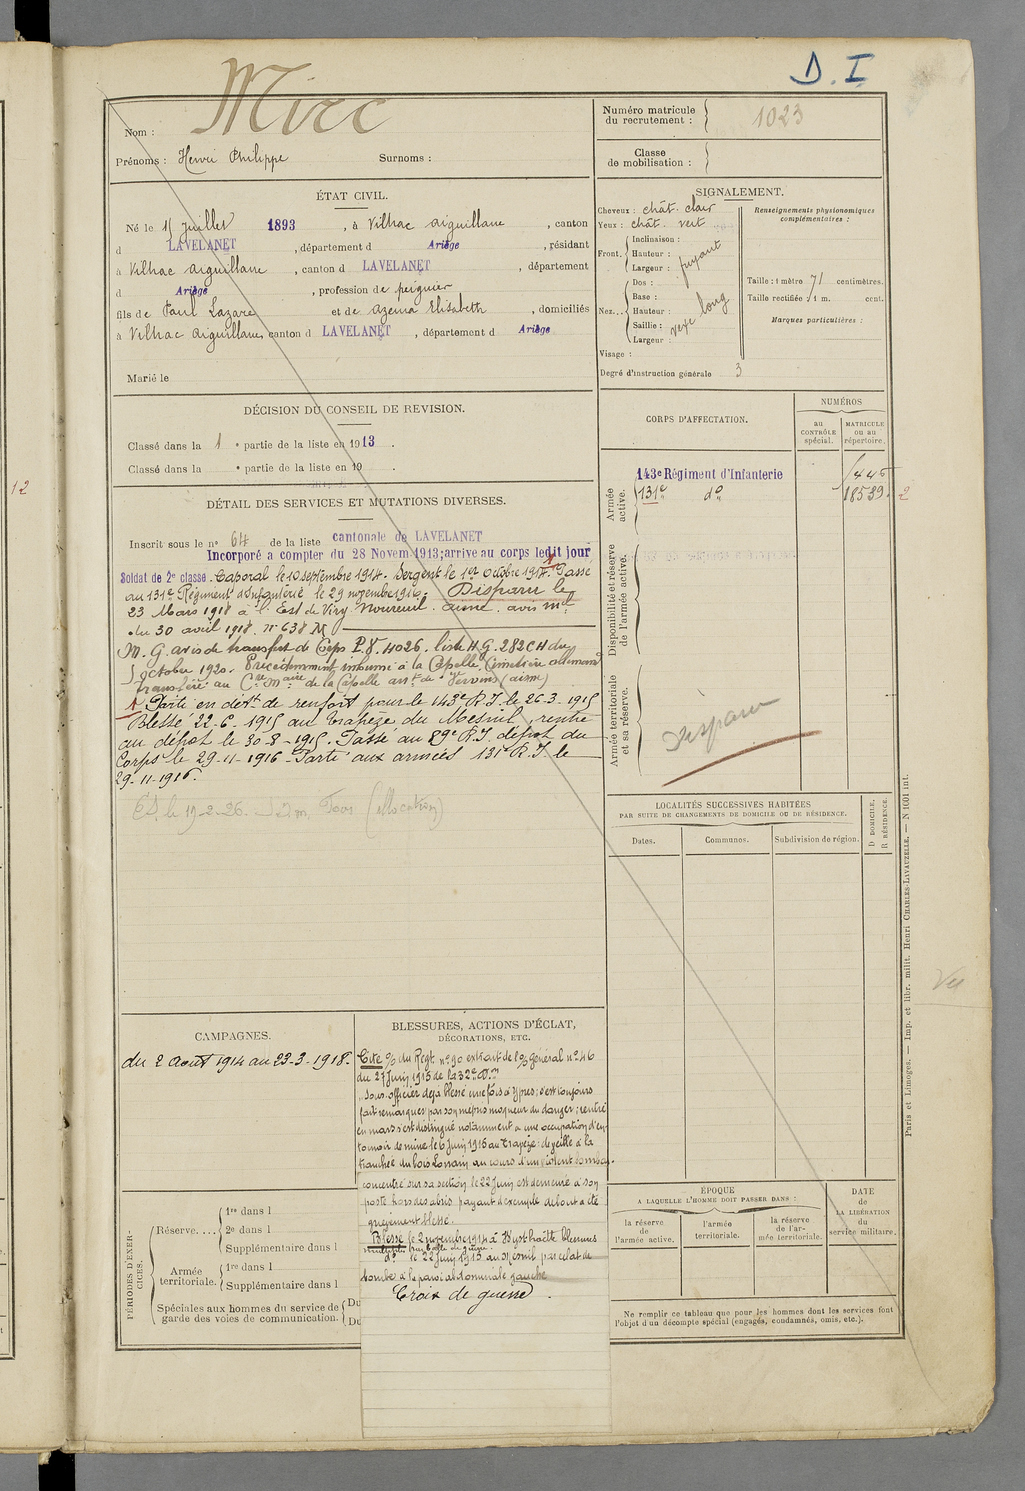 D. I
Mirc
Nom :
Prénoms : Henri Philippe Surnoms :
Numéro matricule
du recrutement : 1023
Classe
de mobilisation :
ÉTAT CIVIL.
Né le 15 juillet 1893, à Vilhac Aiguillane, canton
d LAVELANET, département d Ariège, résidant
à Vilhac Aiguillane, canton d LAVELANET, département
d Ariège, profession de peignier
fils de Paul Lazare et de Azema Elisabeth, domiciliés
à Vilhac Aiguillane, canton d LAVELANET, département d Ariège
Marié le
SIGNALEMENT.
Cheveux : chât. clair
Yeux : chât. vert
Front. Inclinaison :
Hauteur : fuyant
Largeur :
Nez... Dos :
Base :
Hauteur : vexe long
Saillie :
Largeur :
Visage :
Degré d'instruction générale 3
Renseignements physionomiques
complémentaires :
Taille : 1 mètre 71 centimètres.
Taille rectifiée : 1 m. cent.
Marques particulières :
DÉCISION DU CONSEIL DE REVISION.
Classé dans la 1e partie de la liste en 1913.
Classé dans la e partie de la liste en 19 .
CORPS D'AFFECTATION.
NUMÉROS
au
CONTRÔLE
spécial.
MATRICULE
ou au
répertoire.
Armée
active.
143e Régiment d'Infanterie
131e do 18539
2
12
Disponibilité et réserve
de l'armée active.
Armée territoriale
et sa réserve.
Disparu
DÉTAIL DES SERVICES ET MUTATIONS DIVERSES.
Inscrit sous le no 64 de la liste cantonale de LAVELANET
Incorporé à compter du 28 Novem 1913; arrive au corps ledit jour
Soldat de 2e classe. Caporal le 10 septembre 1914. Sergent le 1er Octobre 1914. Passé
au 131e Régiment d'Infanterie le 29 novembre 1916. Disparu le
23 Mars 1918 à l'Est de Viry Noureuil. Aisne. avis mel
du 30 avril 1918. No 638 M
M. G. avis de transfert de Corps P.V. 4026. liste H.G. 282 CH du
5 octobre 1920. Précédemment inhumé à la Capelle, Cimetière allemand
transféré au Cre Mre de la Capelle arrt de Vervins (aisne)
Parti en dét. de renfort pour le 143e R.I. le 26-3-1915
Blessé 22-6-1915 au Trapèze du Mesnil, rentré
au dépôt le 30-8-1915. Passé au 89e R.I. dépôt du
Corps le 29-11-1916. Parti aux armées 131e R.I. le
29-11-1916.
le 19-2-26. (allocation)
LOCALITÉS SUCCESSIVES HABITÉES
PAR SUITE DE CHANGEMENTS DE DOMICILE OU DE RÉSIDENCE.
Dates.
Communes.
Subdivision de région.
D DOMICILE.
R RÉSIDENCE.
CAMPAGNES.
du 2 Août 1914 au 23-3-1918.
BLESSURES, ACTIONS D'ÉCLAT,
DÉCORATIONS, ETC.
Cité % du Regt no 90 extrait de l'% général no 46
du 27 Juin 1915 de la 32e D.I.
"Sous-officier déjà blessé une fois à Ypres; s'est toujours
fait remarquer par son mépris moqueur du danger; rentré
en mars s'est distingué notamment à une occupation d'en-
tonnoir de mine le 6 Juin 1915 au Trapèze: de veille à la
tranchée du bois Lorrain au cours d'un violent bombar.
concentré sur sa section le 22 Juin est demeuré à son
poste hors des abris payant d'exemple debout a été
grièvement blessé.
Blessé le 2 novembre 1914 à Wystchaëtte blessures
multiples par balle de guerre.
do le 22 Juin 1915 au Mesnil par éclat de
bombe à la paroi abdominale gauche
Croix de guerre.
Vu
PÉRIODES D'EXER-
CICES.
Réserve....
1re dans l
2e dans l
Supplémentaire dans l
Armée
territoriale.
1re dans l
Supplémentaire dans l
Spéciales aux hommes du service de
garde des voies de communication.
Du
Du
ÉPOQUE
A LAQUELLE L'HOMME DOIT PASSER DANS :
la réserve
de
l'armée active.
l'armée
territoriale.
la réserve
de l'ar-
mée territoriale.
DATE
de
LA LIBÉRATION
du
service militaire.
Ne remplir ce tableau que pour les hommes dont les services font
l'objet d'un décompte spécial (engagés, condamnés, omis, etc.).
Paris et Limoges. — Imp. et libr. milit. Henri CHARLES-LAVAUZELLE. — N 1601 int.